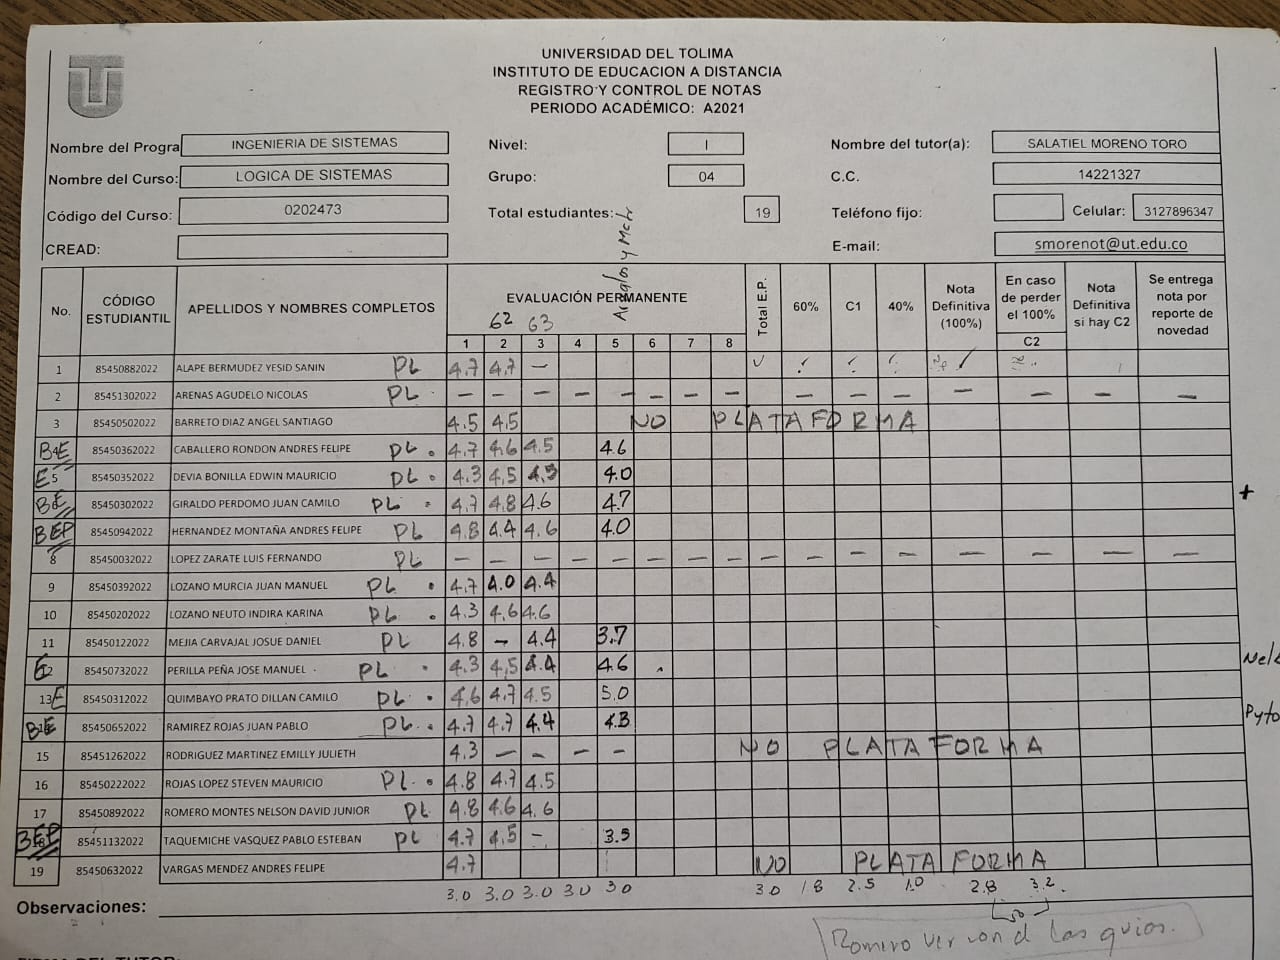 UNIVERSIDAD DEL TOLIMA
INSTITUTO DE EDUCACION A DISTANCIA
REGISTRO Y CONTROL DE NOTAS
PERIODO ACADÉMICO: A2021
Nombre del Progra INGENIERIA DE SISTEMAS Nivel: I Nombre del tutor(a): SALATIEL MORENO TORO
Nombre del Curso: LOGICA DE SISTEMAS Grupo: 04 C.C. 14221327
Código del Curso: 0202473 Total estudiantes: 19 Teléfono fijo: Celular: 3127896347
CREAD: E-mail: smorenot@ut.edu.co
No. CÓDIGO ESTUDIANTIL APELLIDOS Y NOMBRES COMPLETOS EVALUACIÓN PERMANENTE Total E.P. 60% C1 40% Nota Definitiva (100%) En caso de perder el 100% C2 Nota Definitiva si hay C2 Se entrega nota por reporte de novedad
62 63
1 2 3 4 5 6 7 8
1 85450882022 ALAPE BERMUDEZ YESID SANIN PL 4.7 4.7 —
2 85451302022 ARENAS AGUDELO NICOLAS PL — — — — — — — — — — — — — — —
3 85450502022 BARRETO DIAZ ANGEL SANTIAGO 4.5 4.5 NO PLATAFORMA
BE 85450362022 CABALLERO RONDON ANDRES FELIPE PL . 4.7 4.6 4.5 4.6
E 5 85450352022 DEVIA BONILLA EDWIN MAURICIO PL . 4.3 4.5 4.5 4.0
BE 85450302022 GIRALDO PERDOMO JUAN CAMILO PL . 4.7 4.8 4.6 4.7 +
BEP 85450942022 HERNANDEZ MONTAÑA ANDRES FELIPE PL 4.8 4.4 4.6 4.0
8 85450032022 LOPEZ ZARATE LUIS FERNANDO PL — — — — — — — — — — — — — — —
9 85450392022 LOZANO MURCIA JUAN MANUEL PL . 4.7 4.0 4.4
10 85450202022 LOZANO NEUTO INDIRA KARINA PL . 4.3 4.6 4.6
11 85450122022 MEJIA CARVAJAL JOSUE DANIEL PL 4.8 — 4.4 3.7
E12 85450732022 PERILLA PEÑA JOSE MANUEL PL . 4.3 4.5 4.4 4.6 .
13 E 85450312022 QUIMBAYO PRATO DILLAN CAMILO PL . 4.6 4.7 4.5 5.0
BE 85450652022 RAMIREZ ROJAS JUAN PABLO PL . 4.7 4.7 4.4 4.3 Pyto
15 85451262022 RODRIGUEZ MARTINEZ EMILLY JULIETH 4.3 — — — — NO PLATAFORMA
16 85450222022 ROJAS LOPEZ STEVEN MAURICIO PL . 4.8 4.7 4.5
17 85450892022 ROMERO MONTES NELSON DAVID JUNIOR PL 4.8 4.6 4.6
BEP 85451132022 TAQUEMICHE VASQUEZ PABLO ESTEBAN PL 4.7 4.5 — 3.5
19 85450632022 VARGAS MENDEZ ANDRES FELIPE 4.7 NO PLATAFORMA
3.0 3.0 3.0 3.0 3.0 3.0 1.8 2.5 1.0 2.8 3.2
Observaciones:
Romero ver las guias.